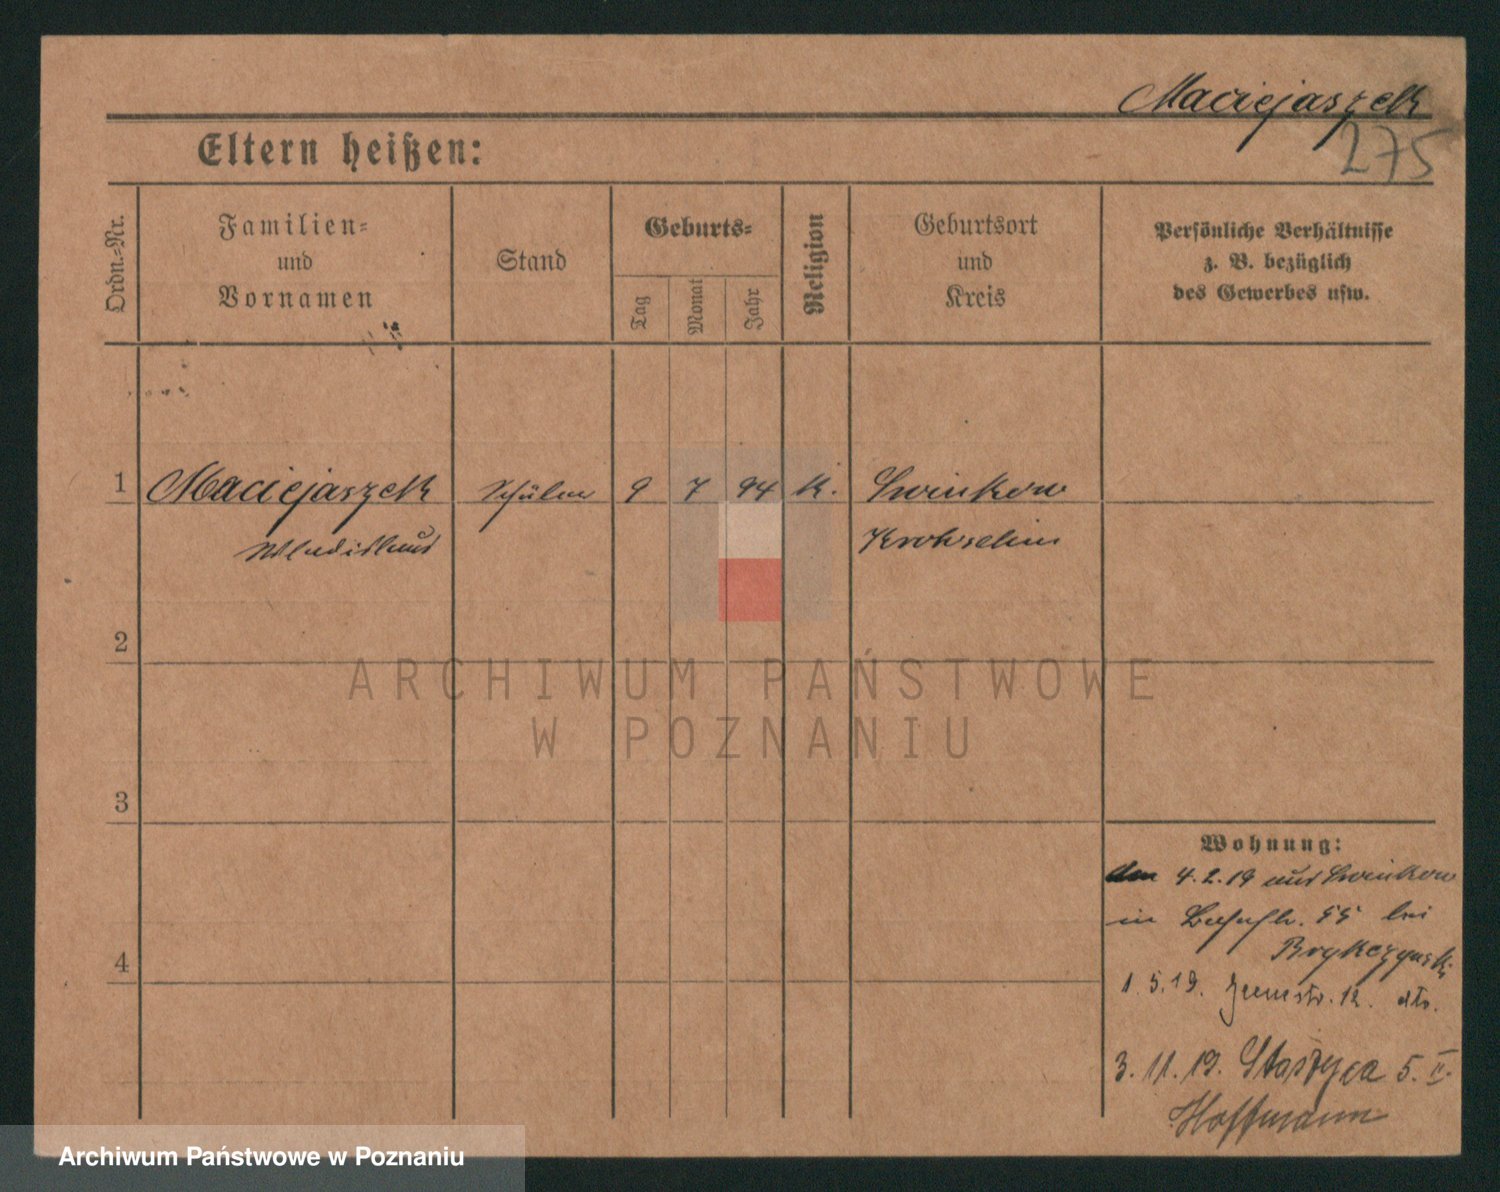 Maciejaszek
275
Eltern heißen:
Ordn.-Nr.
Familien-
und
Vornamen
Stand
Geburts-
Tag
Monat
Jahr
Religion
Geburtsort
und
Kreis
Persönliche Verhältnisse
z. B. bezüglich
des Gewerbes usw.
1 Maciejaszek Schüler 9 7 94 k. Swinkow
Wladislaus Krotoschin
2
3
4
Wohnung:
4.2.19 aus Swinkow
in 55 bei
Brykczynski
1.5.19. 12. dto.
3.11.19. Staszyca 5. II.
Hoffmann
ARCHIWUM PAŃSTWOWE
W POZNANIU
Archiwum Państwowe w Poznaniu